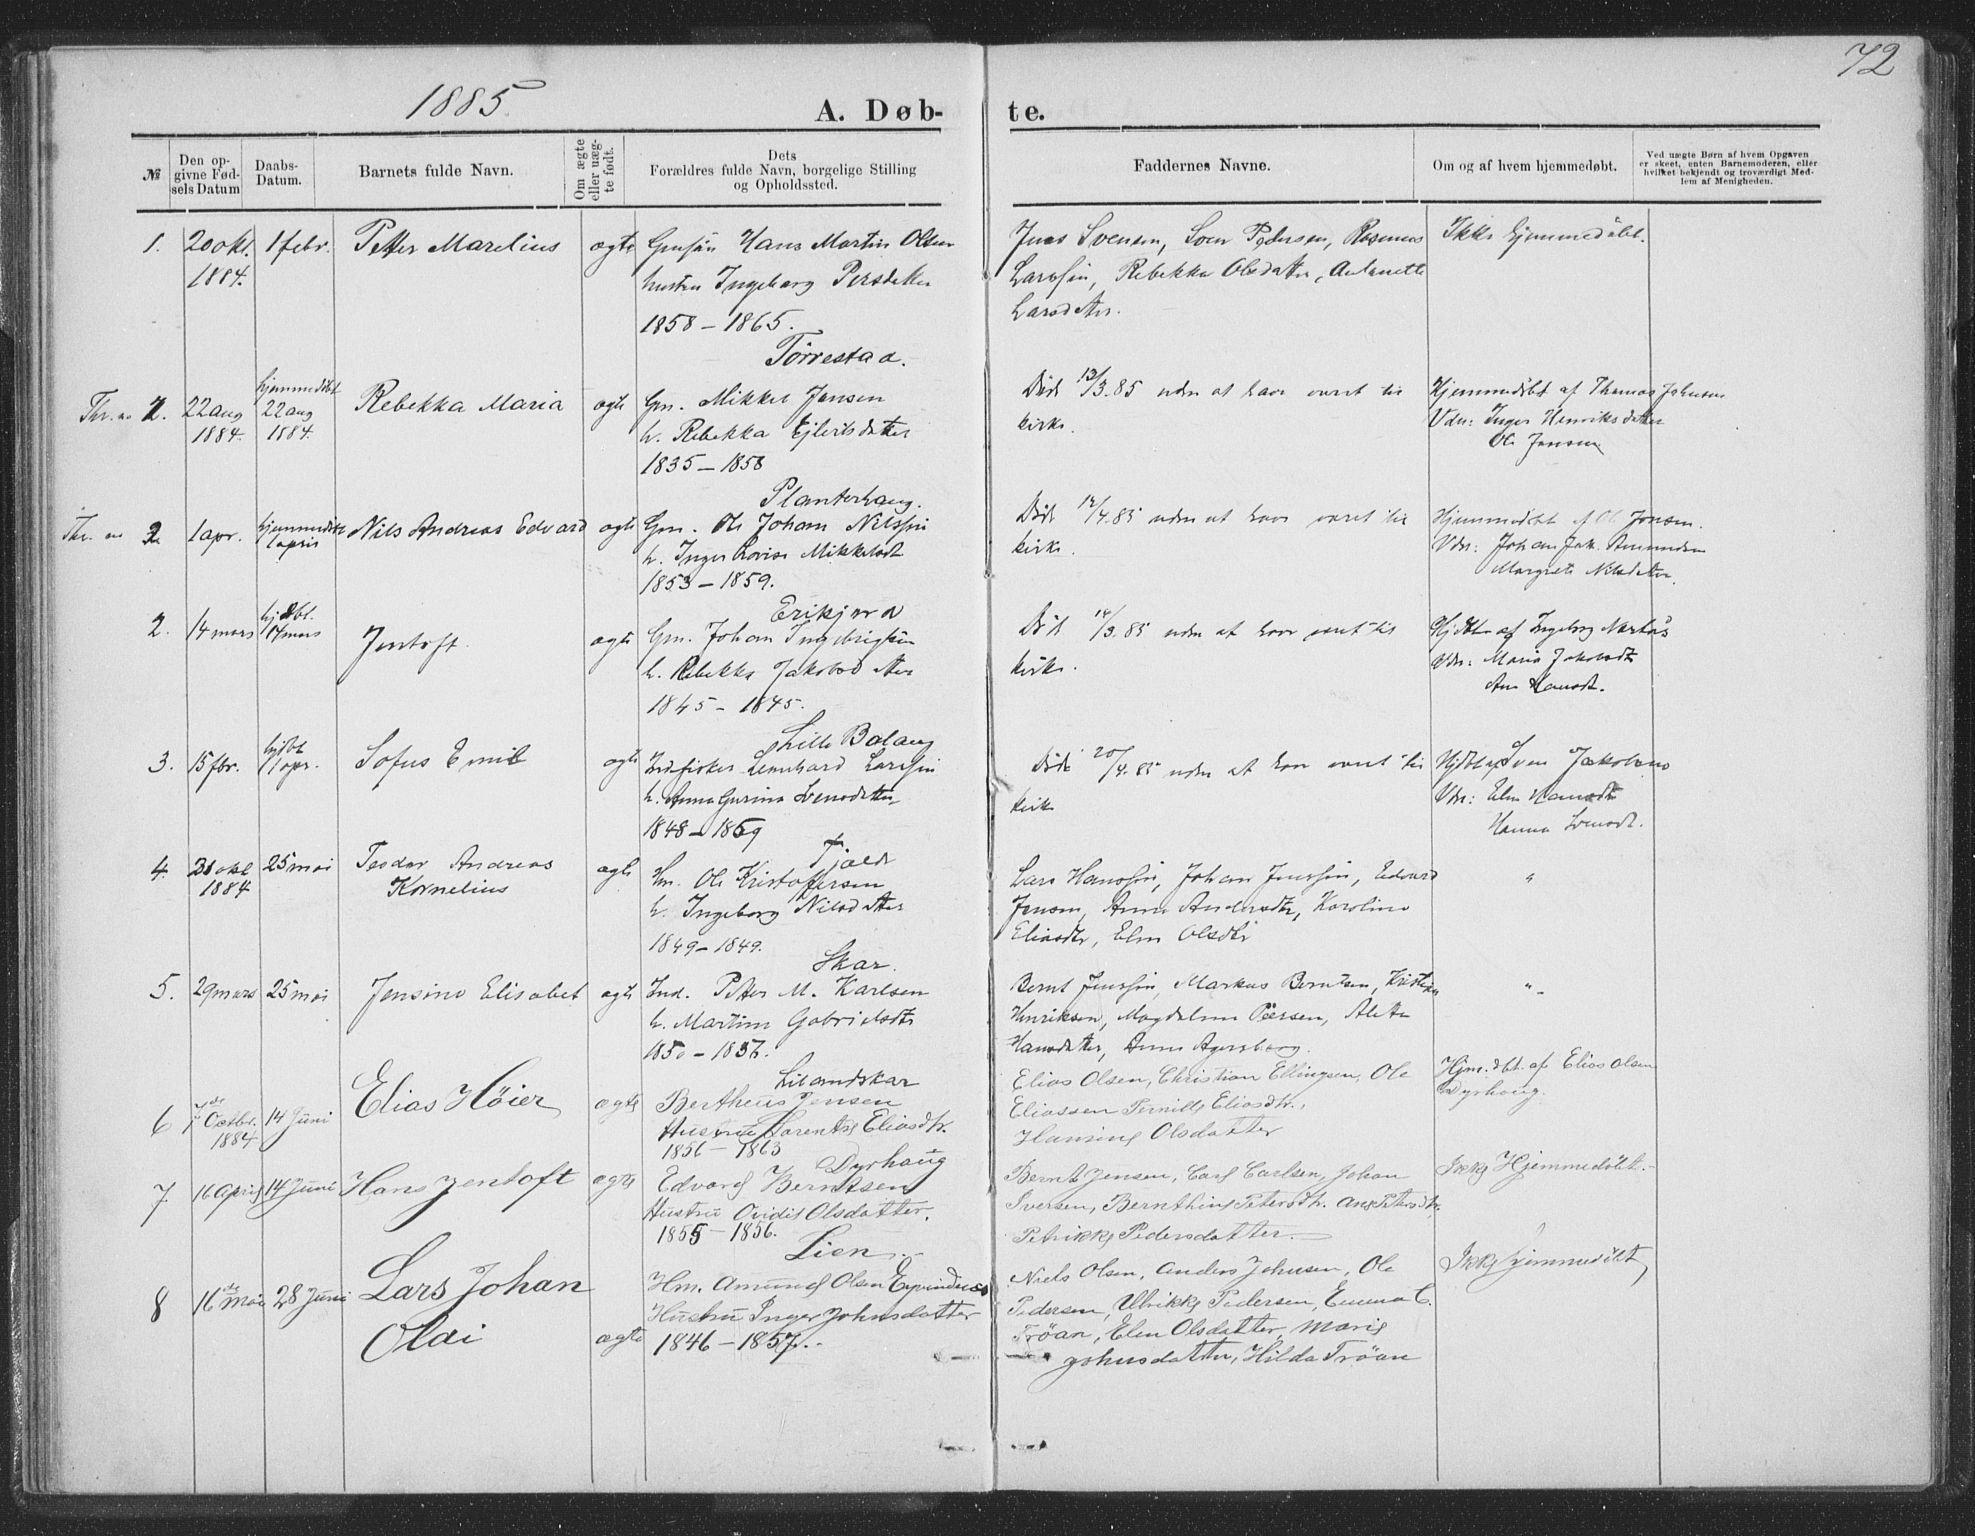 72
1885
A. Døb-
te.
№
Den op-
givne Fød-
sels Datum
Daabs-
Datum.
Barnets fulde Navn.
Om ægte
eller uæg-
te født.
Dets
Forældres fulde Navn, borgelige Stilling
og Opholdssted.
Faddernes Navne.
Om og af hvem hjemmedøbt.
Ved uægte Børn af hvem Opgaven
er skeet, enten Barnemoderen, eller
hvilket bekjendt og troværdigt Med-
lem af Menigheden.
1.
20 okt.
1884.
1 febr.
Petter Marelius
ægte
Hans Martin Olsen
hustru Ingeborg Persdatter
1858 – 1865.
Tørrestad.
Jens Svensen, Sven Pedersen, Rasmus
Larssøn, Rebekka Olsdatter, Antonette
Larsdatter.
Ikke hjemmedøbt.
22 aug
1884.
hjemmedøbt
22 aug
1884.
Rebekka Maria
ægte
Gm. Mikkel Jensen
h. Rebekka Ejlertsdatter
1835 – 1858
Planterhaug.
Død 13/3.85 uden at have været til
kirke.
Hjemmedøbt af Thomas Johnsen
Vdn: Inger Henriksdatter
Ole Jensen
1 apr.
hjemmedøbt
1 april
Nils Andreas Edvard
ægte
Gm. Ole Johan Nilssøn
h. Inger Lovise Mikkelsdt
1853 – 1859.
Erikjord
Død 14/4.85 uden at have været til
kirke.
Hjemmedøbt af Ole Jensen.
Vdn: Johan Jak. Amundsen
Margrete Nilsdatter.
2.
14 mars
hjdbt.
14 mars
Jentoft.
ægte
Gm. Johan Ingebrigtsen
h. Rebekka Jakobsdatter
1845 – 1845.
Lille Balang
Død 14/3.85 uden at have været til
kirke.
Hjdbt af Ingeborg
Vdn: Maria Jakobsdt
Ane Hansdt.
3.
15 fbr.
hjdbt
1 apr.
Sofus Emil
ægte
Indfisker Leonhard Larssøn
h. Anna Gurina Svensdatter
1848 – 1859
Fjeldt
Død 20/4.85 uden at have været til
kirke
Hjdbt af Sven Jakobsen
Vdn: Elen Hansdt
Hanna Svensdt.
4.
31 okt
1884
25 mai
Teodor Andreas
Kornelius
ægte
Hm. Ole Kristoffersen
h. Ingeborg Nilsdatter
1849 – 1849.
Skar.
Lars Hanssøn, Johan Jenssøn, Edvard
Jensen, Anna Andersdtr, Karoline
Eliasdtr, Elen Olsdtr
"
5.
29 mars
25 mai
Jensine Elisabet
ægte
Ind. Petter M. Karlsen
h. Martine Gabrielsdtr
1850 – 1857.
Lilandskar
Bernt Jenssøn, Markus Berntsen, Kristian
Henriksen, Magdalena Peersen, Aleta
Hansdatter, Anna Agersborg.
"
6
7de Octbr.
1884
14 Juni
Elias Høier
ægte
Bertheus Jensen
Hustru Lorentse Eliasdtr.
1856 – 1863
Dyrhaug
Elias Olsen, Christian Ellingsen, Ole
Eliassen Pernille Eliasdtr.,
Hansine Olsdatter
Hjm.dbt. af Elias Olsen
Dyrhaug.
7
16 April
14 Juni
Hans Jentoft
ægte
Edvard Berntsen
Hustru Ovidie Olsdatter.
1855 – 1856.
Lien.
Bernt Jensen, Carl Carlsen, Johan
Iversen, Bernthine Petersdtr. Ane Petersdtr.
Petrikke Pedersdatter.
Ikke Hjemmedøbt.
8
16de Mai
28 Juni
Lars Johan
Olai
ægte
Hm. Amund Olsen Evenndnes
Hustru Inger Johnsdatter
1846 – 1857.
Niels Olsen, Anders Johnsen, Ole
Pedersen, Ulrikke Pedersen, Emma C.
Trøan, Elen Olsdatter, Marie
Johnsdatter, Hilda Trøan
Ikke hjemmedøbt